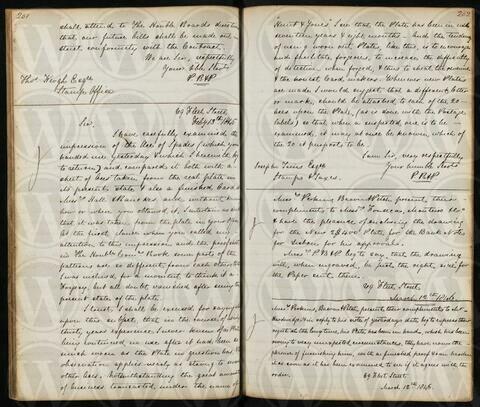 201
shall attend to The Honble Boards direction
that our future bills shall be made out
strict conformity with the Contract.
We are Sir, respectfully
Your obt Servts
P B & P
Thos Keogh Esqre
Stamps Office
69 Fleet Street
Feby 18th 1845
Sir,
I have carefully examined the
impression of the Ace of Spades (which you
handed me yesterday & which I herewith
return) and compared it both with a
sheet of Aces taken from the real plate in
its present state & also a finished Card
Messrs Hall & Bancks and without
how or where you obtained it, I entertain no
that it was taken from the plate in your
At the first glance when you called my
attention to this impression and the
in The Honble Comrs Book some part of the
patterns are so different, from each other that
I was inclined, for a moment to think it a
Forgery, but all doubt vanished after seeing the
present state of the plate.
I trust, I shall be excused for saying
upon this subject, that in the course of
thirty years experience I never knew of a Plate
being continued in use after it had been so
much worn as the Plate in question has
observation applies nearly as strong to some
other Aces. Notwithstanding the great amount
of business transacted, under the name of
202
Hunt & Sons I see that, the Plate has been in use
seventeen years & eight months. And the tendency
of using worn out Plates, like this, is to encourage
and facilitate forgeries, to increase the difficulty
of detection, when forged, & thus to cheat the revenue
& the honest Card makers. Whenever new Plates
are made I would suggest that a different letter
or mark, should be attached to each of the 20
Aces upon the Plate, (as is done with the Postage
labels) so that when a suspected one is to be
examined, it may at once be known, which of
the 20 it purports to be.
I am Sir, very respectfully
Your humble Servt
P B & P
Joseph Timms Esqre
Stamps & Taxes
Messrs Perkins, Bacon & Petch, present their
compliments to Messrs Fonseca, Monteiro & Co
& have the pleasure of enclosing the drawing
for the New Plate, for the Bank Notes
for Lisbon for his approval.
Messrs P B & P beg to say, that the drawing
will, when removed, be just the right size, for
the Paper sent them.
69 Fleet Street,
March 12th 1845
Messrs Perkins, Bacon & Petch, present their compliments to
in reply to his note of yesterdays date beg to express their
regret at the long time, his Plate has been in hand, which has been
owing to very unexpected circumstances, they have now the
pleasure of furnishing him, with a finished proof &
as soon as it has been examined to see if it agrees with the
order.
69 Fleet Street
March 12th 1845